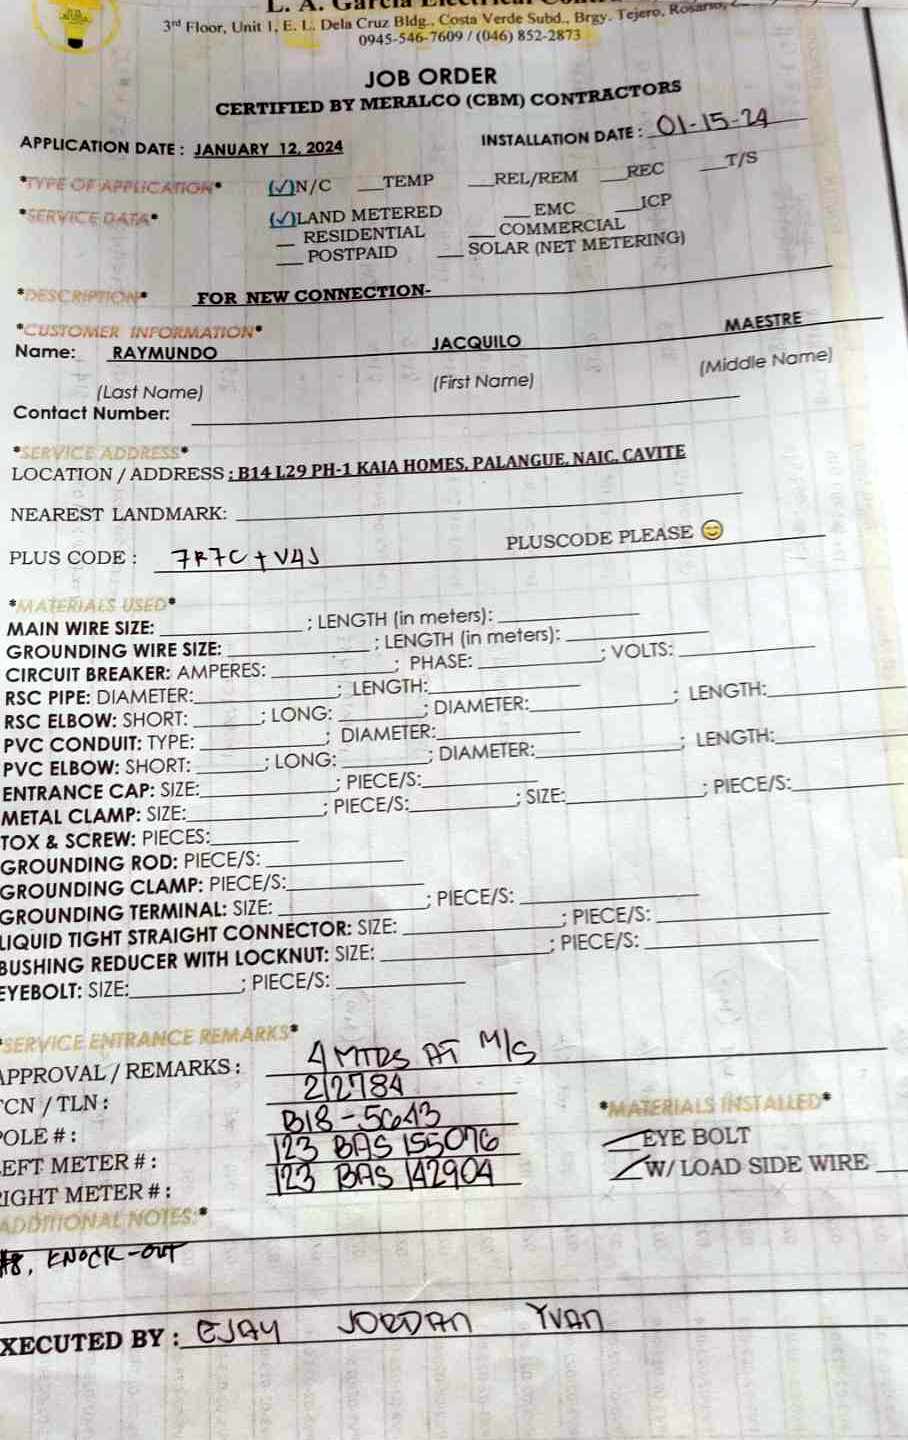 L. A. Garcia Electrical
3rd Floor, Unit 1, E. L. Dela Cruz Bldg., Costa Verde Subd., Brgy. Tejero, Rosario,
0945-546-7609 / (046) 852-2873
JOB ORDER
CERTIFIED BY MERALCO (CBM) CONTRACTORS
APPLICATION DATE : JANUARY 12, 2024 INSTALLATION DATE : 01-15-24
*TYPE OF APPLICATION* (✓)N/C ___TEMP ___REL/REM ___REC ___T/S
*SERVICE DATA* (✓)LAND METERED ___EMC ___ICP
__ RESIDENTIAL ___ COMMERCIAL
___ POSTPAID ___ SOLAR (NET METERING)
*DESCRIPTION* FOR NEW CONNECTION-
*CUSTOMER INFORMATION*
Name: RAYMUNDO JACQUILO MAESTRE
(Last Name) (First Name) (Middle Name)
Contact Number: ___
*SERVICE ADDRESS*
LOCATION / ADDRESS : B14 L29 PH-1 KAIA HOMES, PALANGUE, NAIC, CAVITE
NEAREST LANDMARK: ___
PLUS CODE : 7R7C+V4J PLUSCODE PLEASE 😊
*MATERIALS USED*
MAIN WIRE SIZE: ___; LENGTH (in meters): ___
GROUNDING WIRE SIZE: ___; LENGTH (in meters): ___
CIRCUIT BREAKER: AMPERES: ___; PHASE: ___; VOLTS: ___
RSC PIPE: DIAMETER: ___; LENGTH: ___
RSC ELBOW: SHORT: ___; LONG: ___; DIAMETER: ___; LENGTH: ___
PVC CONDUIT: TYPE: ___; DIAMETER: ___
PVC ELBOW: SHORT: ___; LONG: ___; DIAMETER: ___; LENGTH: ___
ENTRANCE CAP: SIZE: ___; PIECE/S: ___
METAL CLAMP: SIZE: ___; PIECE/S: ___; SIZE: ___; PIECE/S: ___
TOX & SCREW: PIECES: ___
GROUNDING ROD: PIECE/S: ___
GROUNDING CLAMP: PIECE/S: ___
GROUNDING TERMINAL: SIZE: ___; PIECE/S: ___
LIQUID TIGHT STRAIGHT CONNECTOR: SIZE: ___; PIECE/S: ___
BUSHING REDUCER WITH LOCKNUT: SIZE: ___; PIECE/S: ___
EYEBOLT: SIZE: ___; PIECE/S: ___
*SERVICE ENTRANCE REMARKS*
APPROVAL / REMARKS : 4 MTRS AT M/S
TCN / TLN : 212784
POLE # : B18-5643
LEFT METER # : 123 BAS 155076
RIGHT METER # : 123 BAS 142904
*MATERIALS INSTALLED*
EYE BOLT
W/ LOAD SIDE WIRE ___
ADDITIONAL NOTES:*
#8, KNOCK-OUT
EXECUTED BY : EJAY JORDAN YVAN